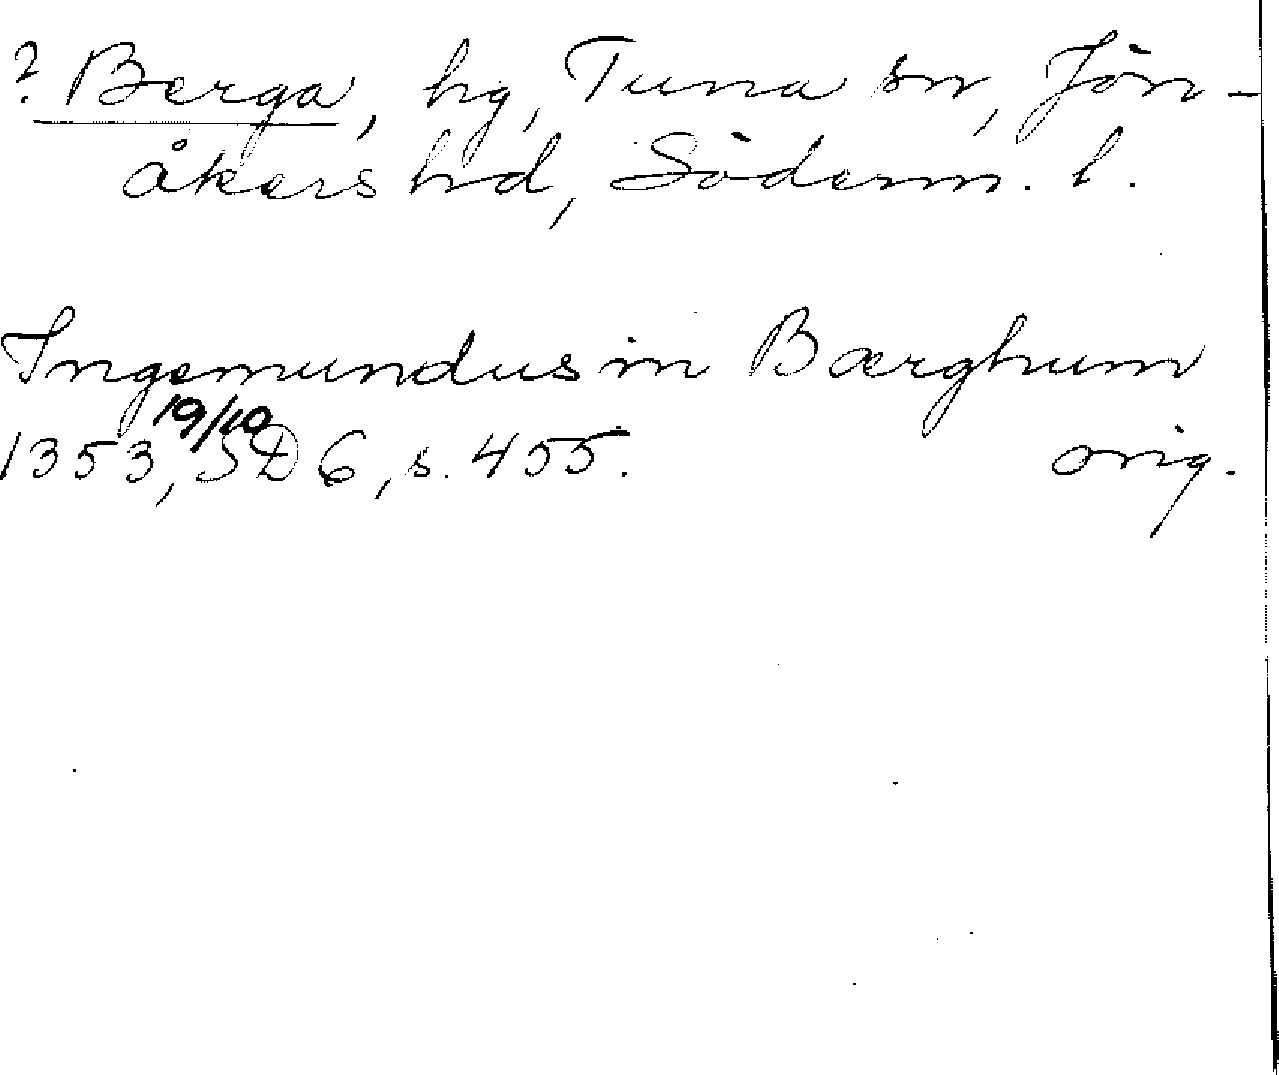 ? Berga, hg, Tuna sn, Jön-
åkers hd, Söderm. l.
Ingemundus in Bærghum
1353, 19/10 SD 6, s. 455. orig.